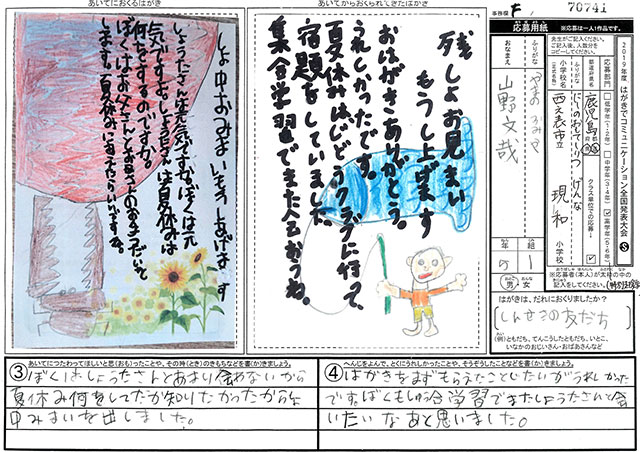 事務欄
70741
あいてにおくるはがき
しょ中おみまいもうしあげます
しょうたさんは元気ですか。ぼくは元
気ですよ。しょうたさんは夏休みは
何をするのですか。
ぼくはお父さんとお母さんのお手つだいを
します。夏休みに会えたらいいですね。
あいてからおくられてきたはがき
残しょお見まい
もうし上げます
おはがきありがとう。
うれしかったです。
夏休みはじどうクラブに行って、
宿題をしていました。
集合学習でまた会おうね。
応募用紙
※応募は一人1作品です。
2019年度 はがきでコミュニケーション全国発表大会
S
応募部門
低学年(1・2年)
中学年(3・4年)
高学年(5・6年)
都道府県名
鹿児島
小学校名
にしのおもてしりつ
西之表市立
げんな
現和
小学校
クラス単位での応募
ふりがな
やまの ふみや
おなまえ
山野文哉
年
5
組
1
男・女
※応募者(本人)が太枠の中の
記入をしてください。
はがきは、だれにおくりましたか?
しんせきの友だち
(例)ともだち、てんこうしたともだち、いとこ、
いなかのおじいさん・おばあさんなど
③
あいてにつたわってほしいと思(おも)ったことや、その時(とき)のきもちなどを書(か)きましょう。
ぼくは、しょうたさんとあまり会わないから
夏休み何をしてたか知りたかったからしょ
中みまいを出しました。
④
へんじをよんで、とくにうれしかったことや、そうぞうしたことなどを書(か)きましょう。
はがきをまずもらえたことじたいがうれしかった
です。ぼくもしゅう合学習でまたしょうたさんと会
いたいなあと思いました。